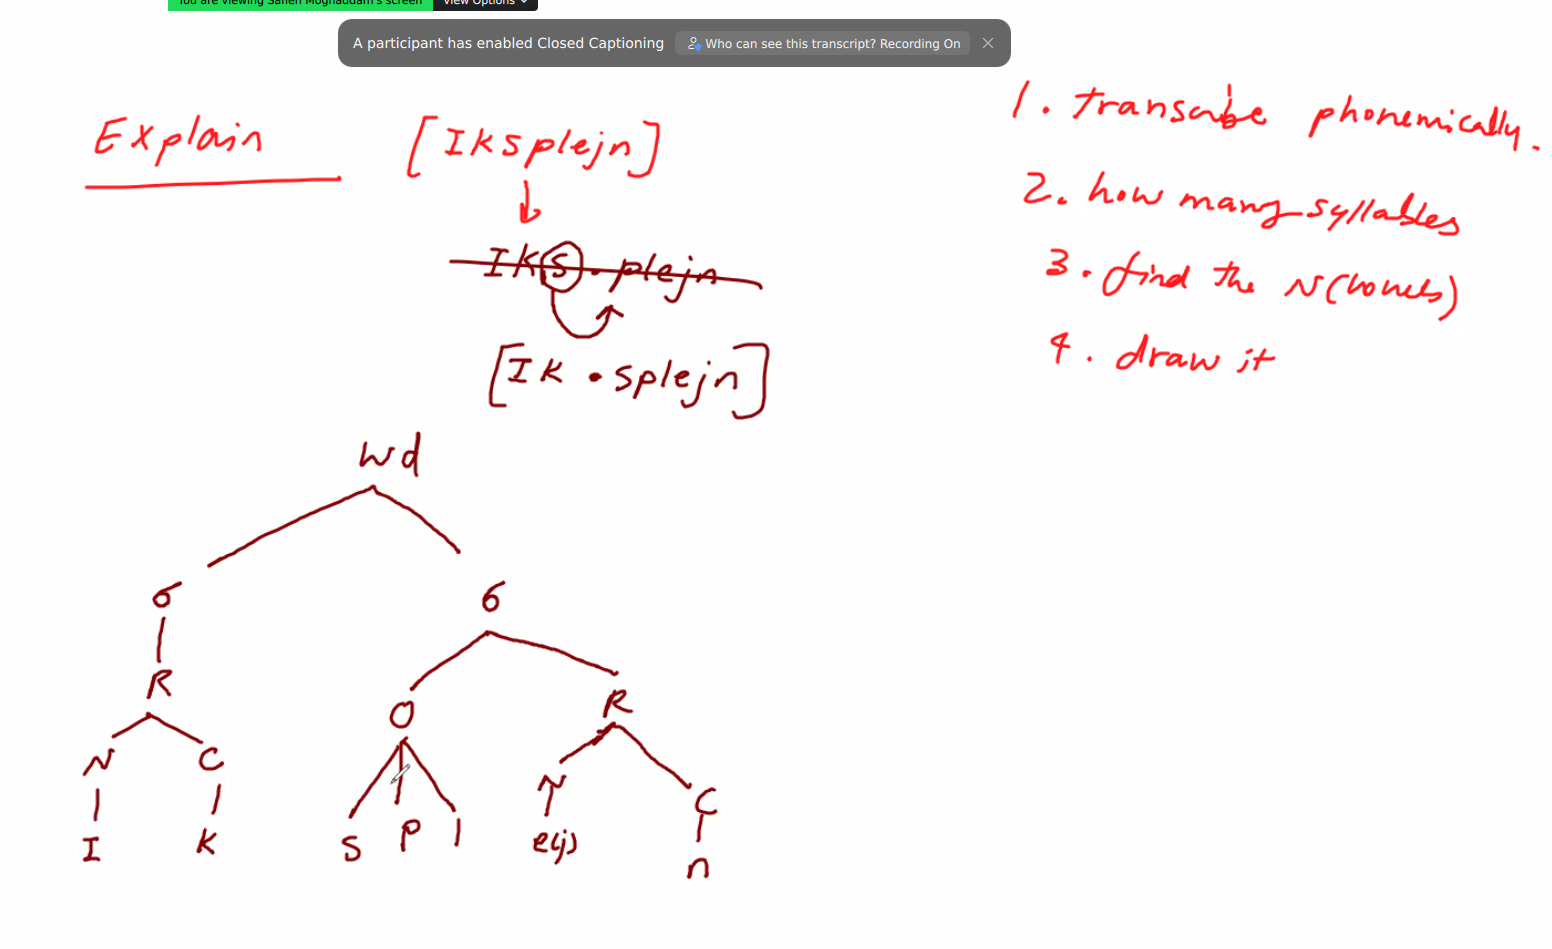 You are viewing Saheh Moghaddam's screen View Options
A participant has enabled Closed Captioning Who can see this transcript? Recording On
Explain [Iksplejn]
Iks . plejn
[Ik . splejn]
1. transcribe phonemically.
2. how many syllables
3. find the N(vowels)
4. draw it
wd
σ σ
R
O R
N C
N C
I K
s p l e(j) n